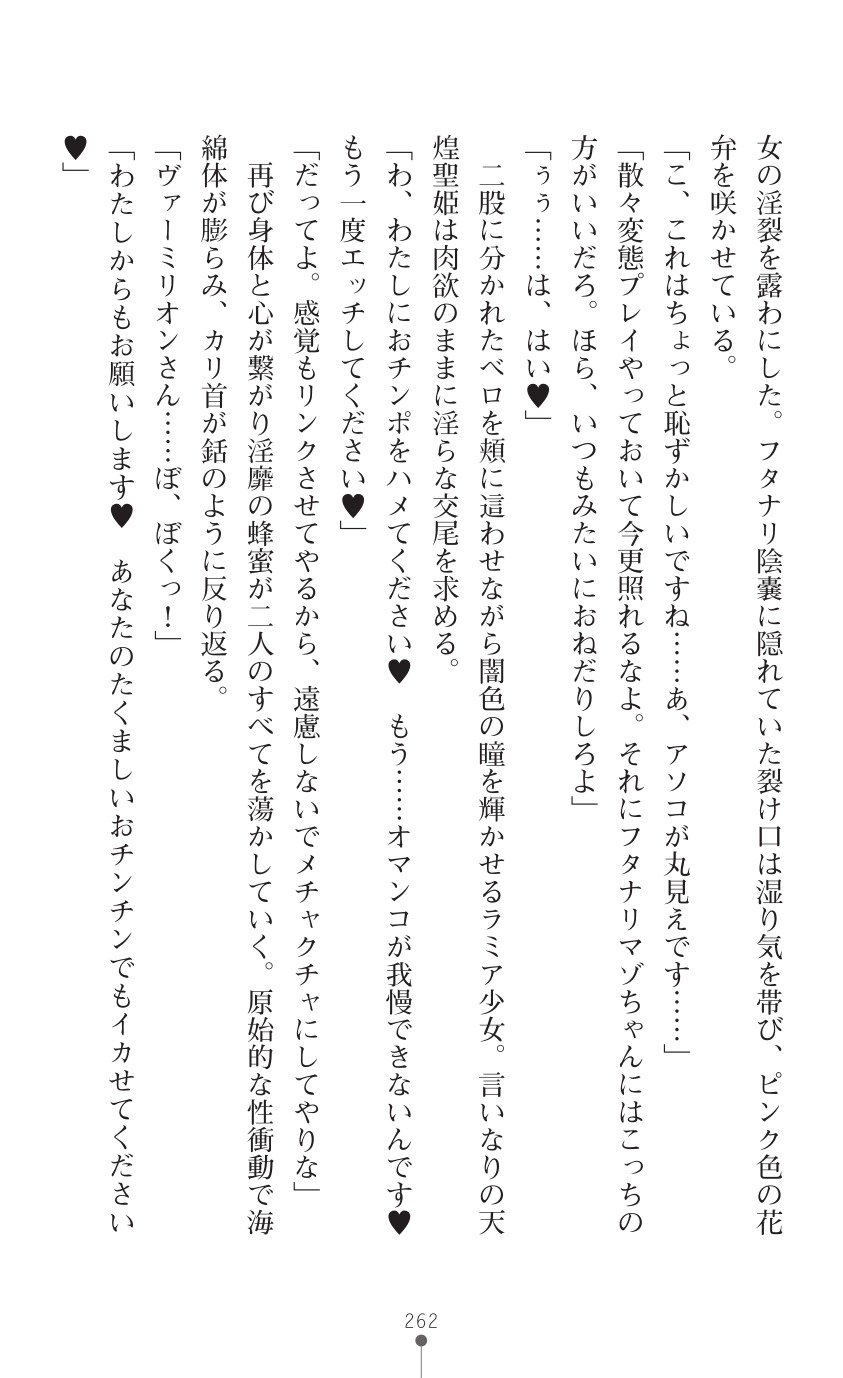 女の淫裂を露わにした。フタナリ陰嚢に隠れていた裂け口は湿り気を帯び、ピンク色の花
弁を咲かせている。
「こ、これはちょっと恥ずかしいですね……ぁ、アソコが丸見えです……」
「散々変態プレイやっておいて今更照れるなよ。それにフタナリマゾちゃんにはこっちの
方がいいだろ。ほら、いつもみたいにおねだりしろよ」
「ぅぅ……は、はい♥」
　二股に分かれたベロを頬に這わせながら闇色の瞳を輝かせるラミア少女。言いなりの天
煌聖姫は肉欲のままに淫らな交尾を求める。
「わ、わたしにおチンポをハメてください♥　もう……オマンコが我慢できないんです♥
もう一度エッチしてください♥」
「だってよ。感覚もリンクさせてやるから、遠慮しないでメチャクチャにしてやりな」
　再び身体と心が繋がり淫靡の蜂蜜が二人のすべてを蕩かしていく。原始的な性衝動で海
綿体が膨らみ、カリ首が銛のように反り返る。
「ヴァーミリオンさん……ぼ、ぼくっ！」
「わたしからもお願いします♥　あなたのたくましいおチンチンでもイカせてください
♥」
262